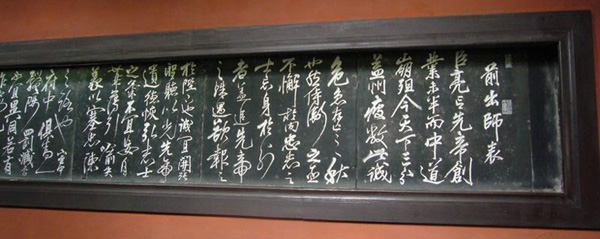 前出師表
臣亮言先帝創
業未半而中道
崩殂今天下三分
益州疲敝此誠
危急存亡之秋
也然侍衛之臣
不懈於內忠志之
士忘身於外
者蓋追先帝
之殊遇欲報之
於陛下也誠宜開張
聖聽以光先帝
遺德恢弘志士
之氣不宜妄自
菲薄引喻失
義以塞忠諫
之路也宮中
府中俱為一
體陟罰臧
否不宜異同若有